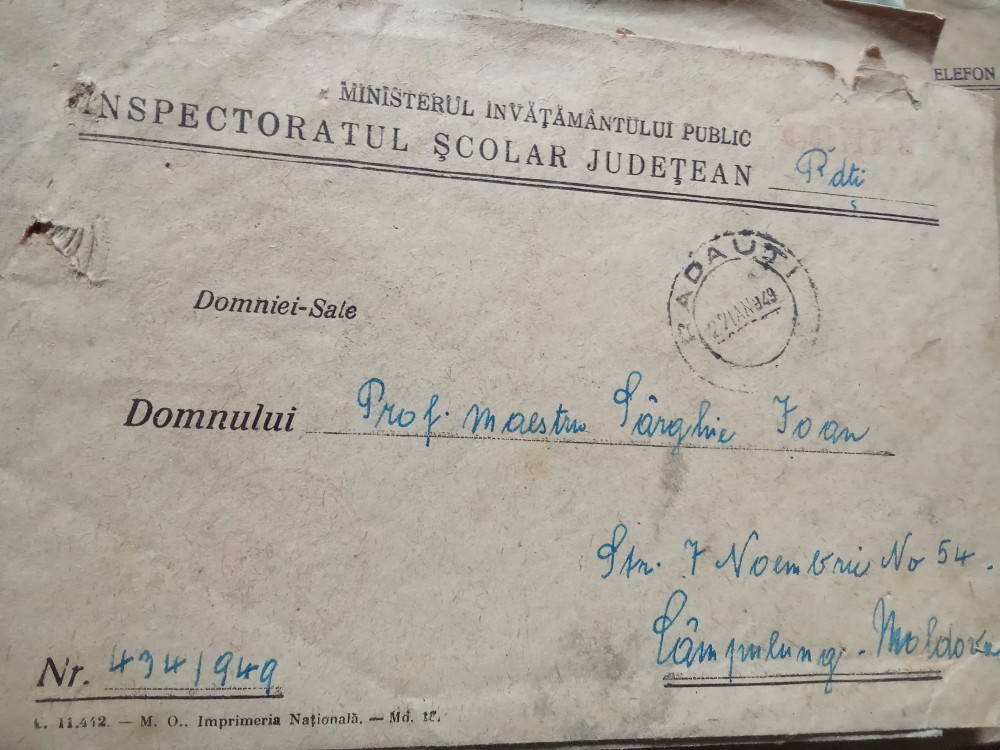 ELEFON
MINISTERUL INVĂȚĂMÂNTULUI PUBLIC
INSPECTORATUL ȘCOLAR JUDEȚEAN Rdți
RADAUTI
27 IAN 949
Domniei-Sale
Domnului Prof. maestru Sârghie Ioan
Str. 7 Noembrie No 54.
Câmpulung. Moldova
Nr. 434/949
11.412. — M. O., Imprimeria Națională. — Md.